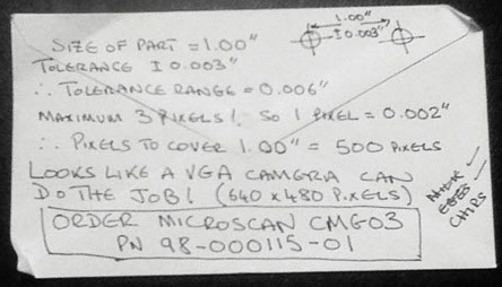 1.00"
± 0.003"
SIZE OF PART = 1.00"
TOLERANCE ± 0.003"
∴ TOLERANCE RANGE = 0.006"
MAXIMUM 3 PIXELS! SO 1 PIXEL = 0.002"
∴ PIXELS TO COVER 1.00" = 500 PIXELS
LOOKS LIKE A VGA CAMERA CAN
DO THE JOB! (640 x 480 PIXELS)
ORDER MICROSCAN CMG03
PN 98-000115-01
MILK ✓
EGGS ✓
CHIPS